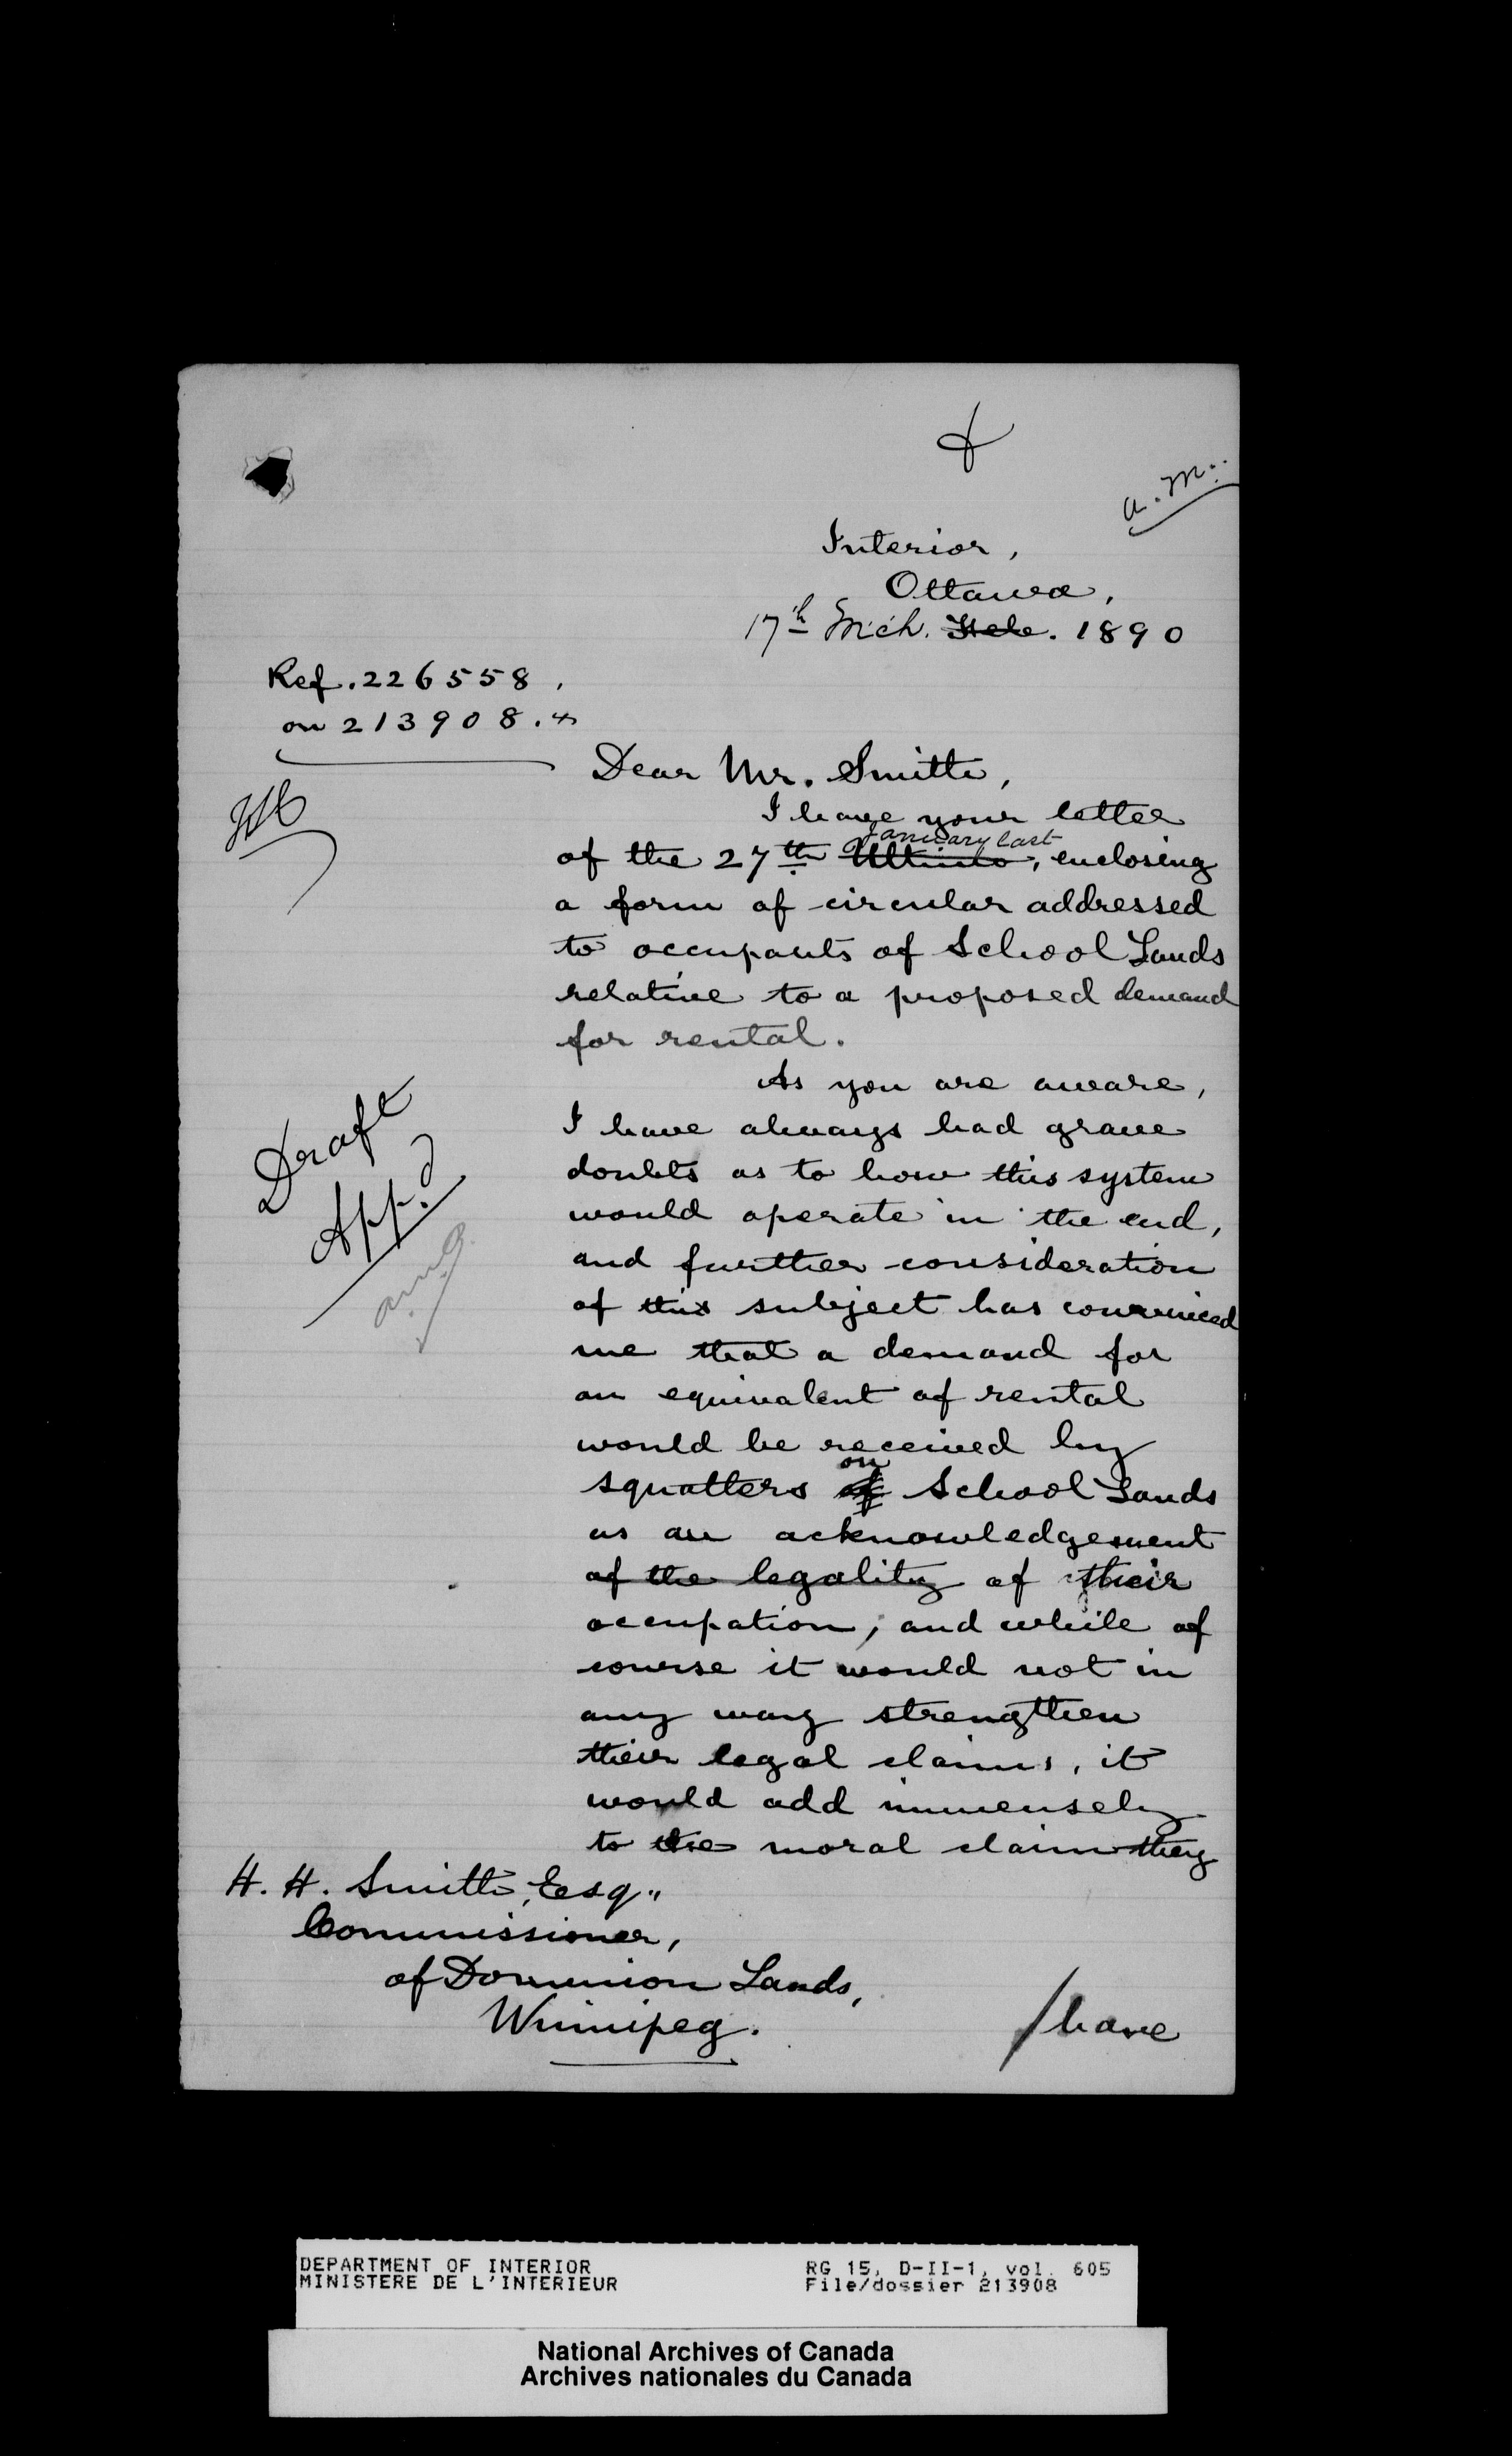 a.m.
Interior,
Ottawa,
17th Mch. Feb. 1890
Ref. 226558,
on 213908.
Dear Mr. Smith,
I have your letter
January last
of the 27th Ultimo, enclosing
a form of circular addressed
to occupants of School Lands
relative to a proposed demand
for rental.
As you are aware,
I have always had grave
doubts as to how this system
would operate in the end,
and further consideration
of this subject has convinced
me that a demand for
an equivalent of rental
would be received by
on
squatters of School Lands
as an acknowledgement
of the legality of their
occupation, and while of
course it would not in
any way strengthen
their legal claims, it
would add immensely
to the moral claim they
/have
Draft
App.d
H. H. Smith, Esq.,
Commissioner,
of Dominion Lands,
Winnipeg.
DEPARTMENT OF INTERIOR
MINISTERE DE L'INTERIEUR
RG 15, D-II-1, vol. 605
File/dossier 213908
National Archives of Canada
Archives nationales du Canada